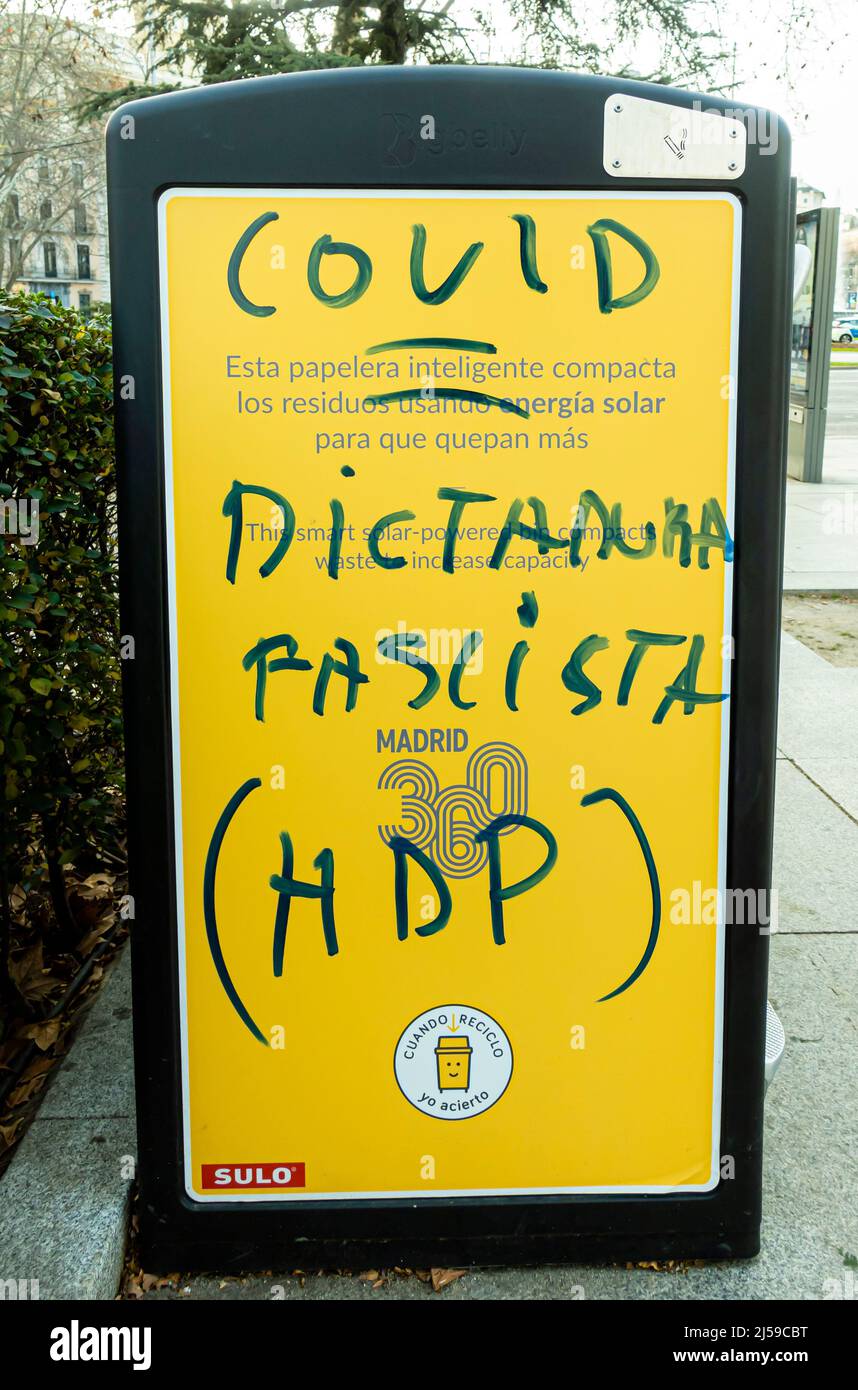 Bigbelly
COVID
Esta papelera inteligente compacta
los residuos usando energía solar
para que quepan más
DICTADURA
This smart solar-powered bin compacts
waste to increase capacity
FASCISTA
MADRID
360
(HDP)
CUANDO RECICLO
yo acierto
SULO
alamy
Image ID: 2J59CBT
www.alamy.com